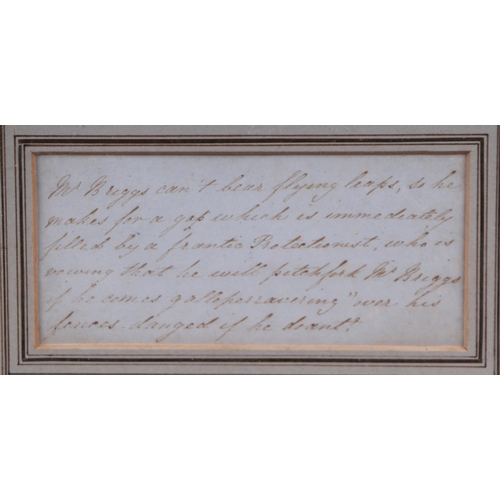 Mr Briggs can't bear flying leaps, so he
makes for a gap which is immediately
filled by a frantic Protectionist, who is
vowing that he will pitchfork Mr Briggs
if he comes "galloperravering" over his
fences - danged if he doant!